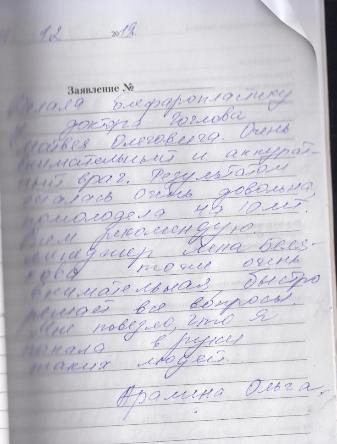 12 2012.
Заявление №
Делала блефаропластику
доктора
Матвея Олеговича. Очень
внимательный и аккурат-
ный врач. Результатом
осталась очень довольна,
помолодела на 10 лет.
Всем рекомендую.
менеджер
тоже очень
внимательная, быстро
решает все вопросы.
Мне повезло, что я
попала в руки
таких людей.
Арамина Ольга.